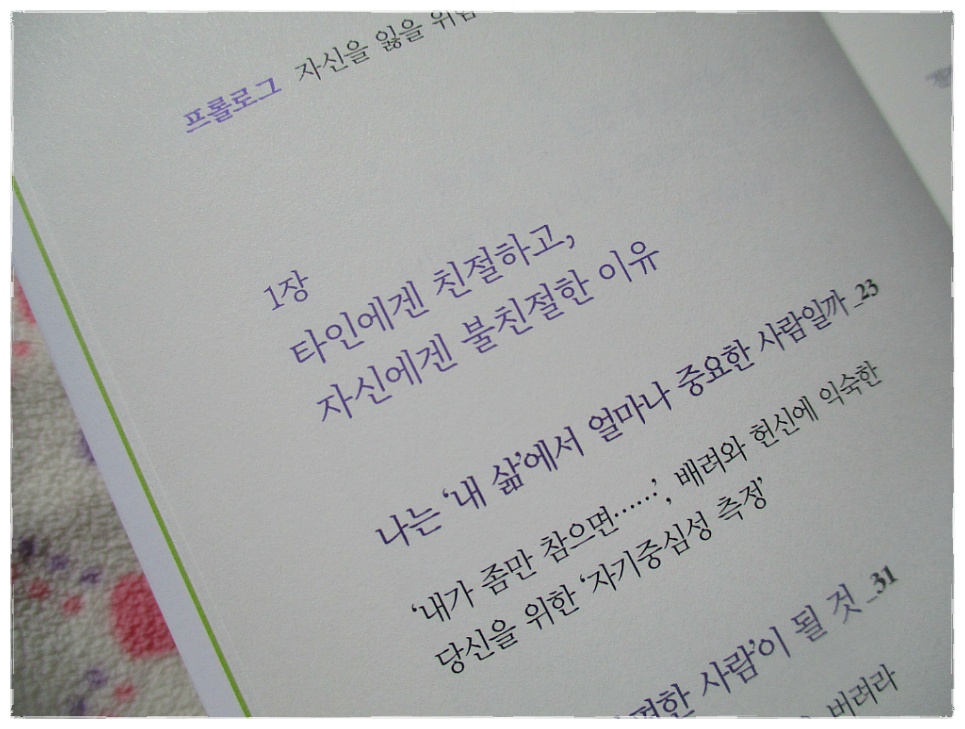 프롤로그 자신을 잃을
1장
타인에겐 친절하고,
자신에겐 불친절한 이유
나는 ‘내 삶’에서 얼마나 중요한 사람일까 _23
‘내가 좀만 참으면……’, 배려와 헌신에 익숙한
당신을 위한 ‘자기중심성 측정’
사람’이 될 것 _31
버려라